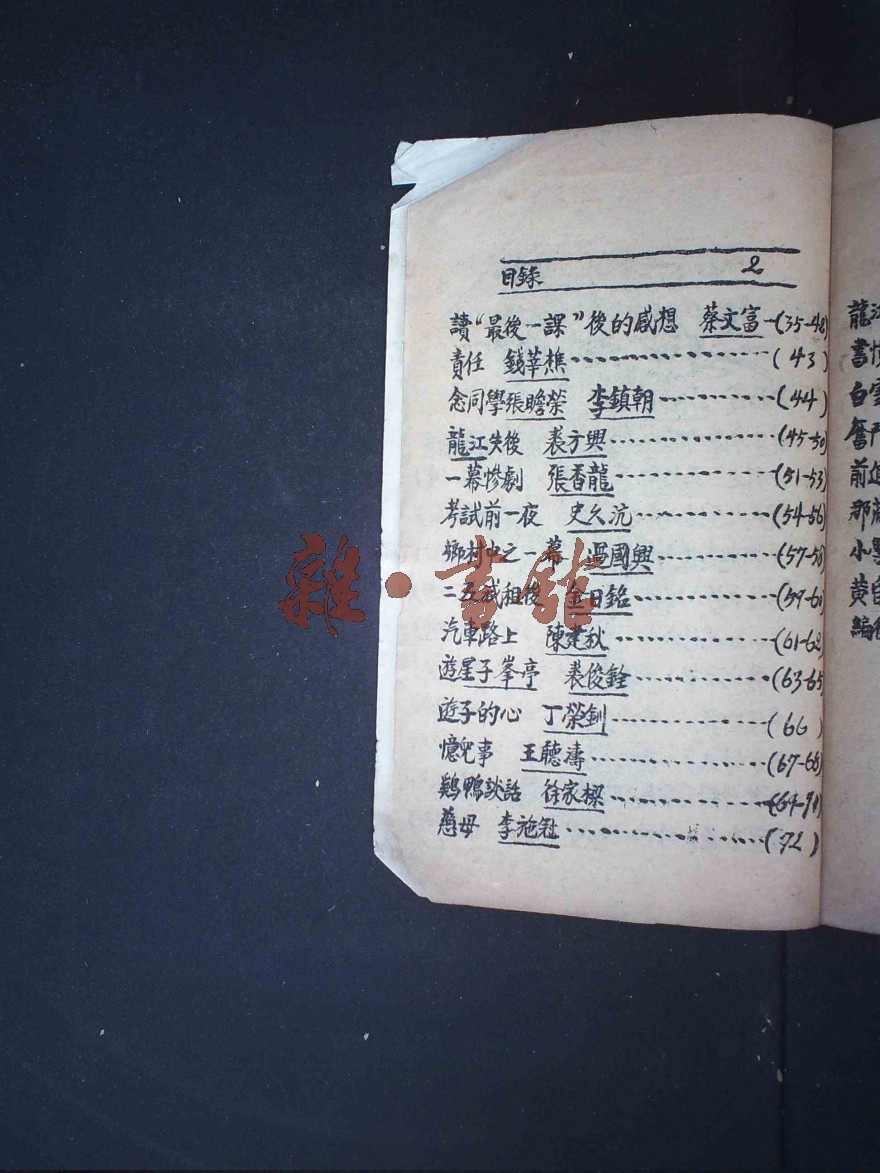 目錄 2
讀“最後一課”後的感想 蔡文富 (35-48
責任 錢莘樵 (43)
念同學張瞻榮 李鎮朝 (44)
龍江失後 裘方興 (45-50
一幕慘劇 張香龍 (51-53)
考試前一夜 史久沆 (54-56)
鄉村中之一幕 馮國興 (57-58)
二五減租後 金日銘 (59-60
汽車路上 陳建秋 (61-62
遊星子峯亭 裘俊銓 (63-65
遊子的心 丁榮釗 (66)
憶兒事 王聽濤 (67-68)
鷄鴨談話 徐家樑 (69-71)
慈母 李施 (72)
雜·書館
龍江
書
白雲
奮鬥
前進
那
小
黄
編後